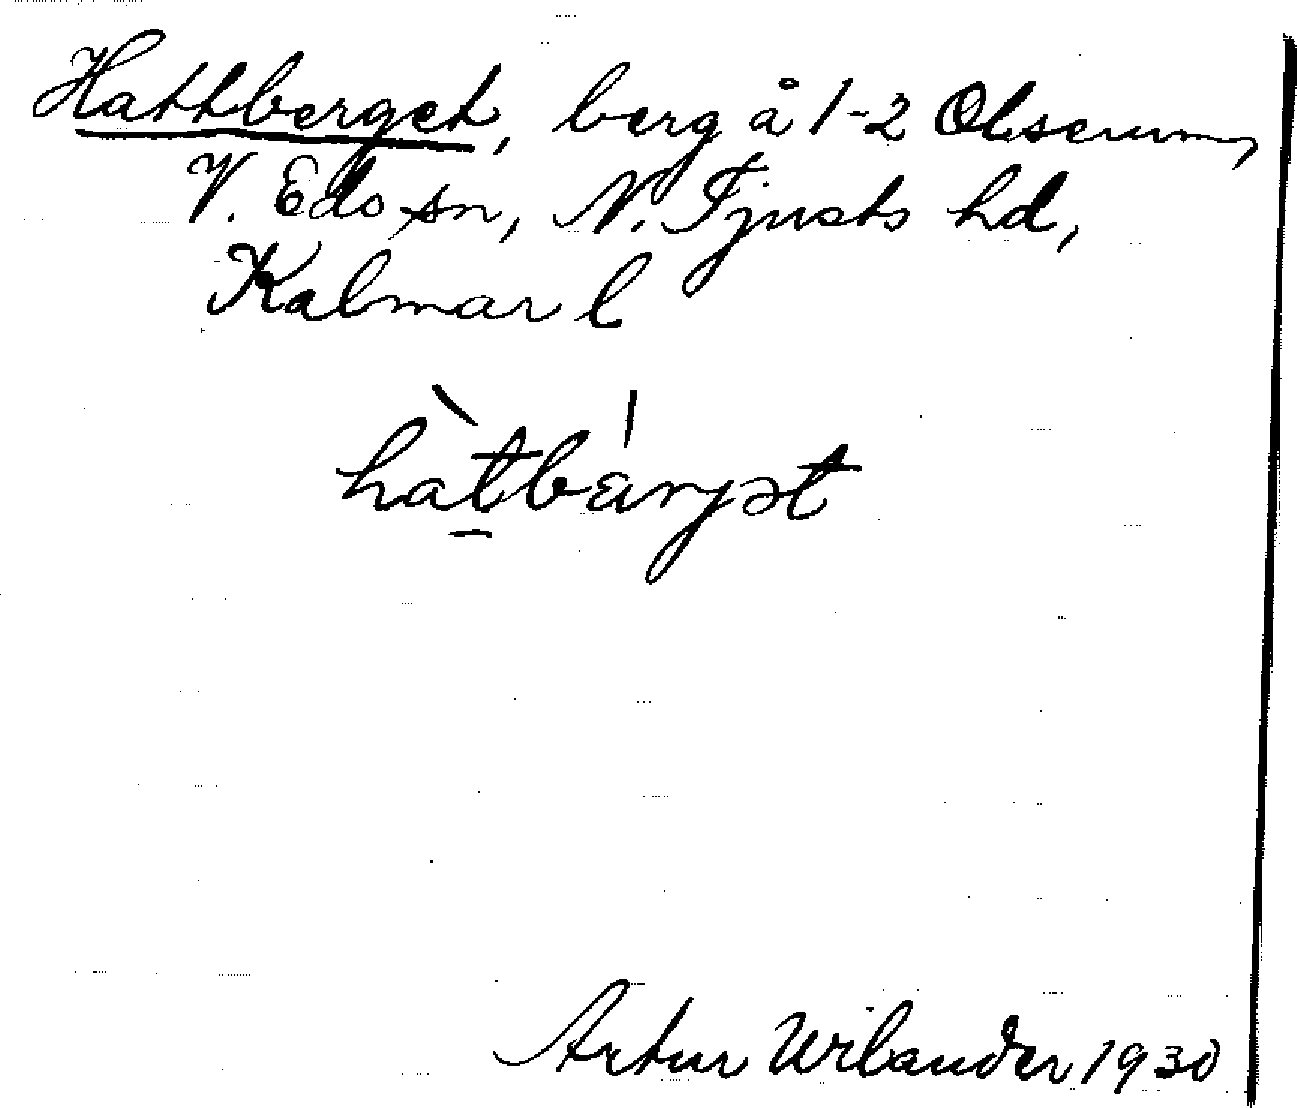 Hattberget, berg å 1-2 Olserum,
V. Eds sn, N. Tjusts hd,
Kalmar l
hàt̠bá̈rjət
Artur Wilander 1930